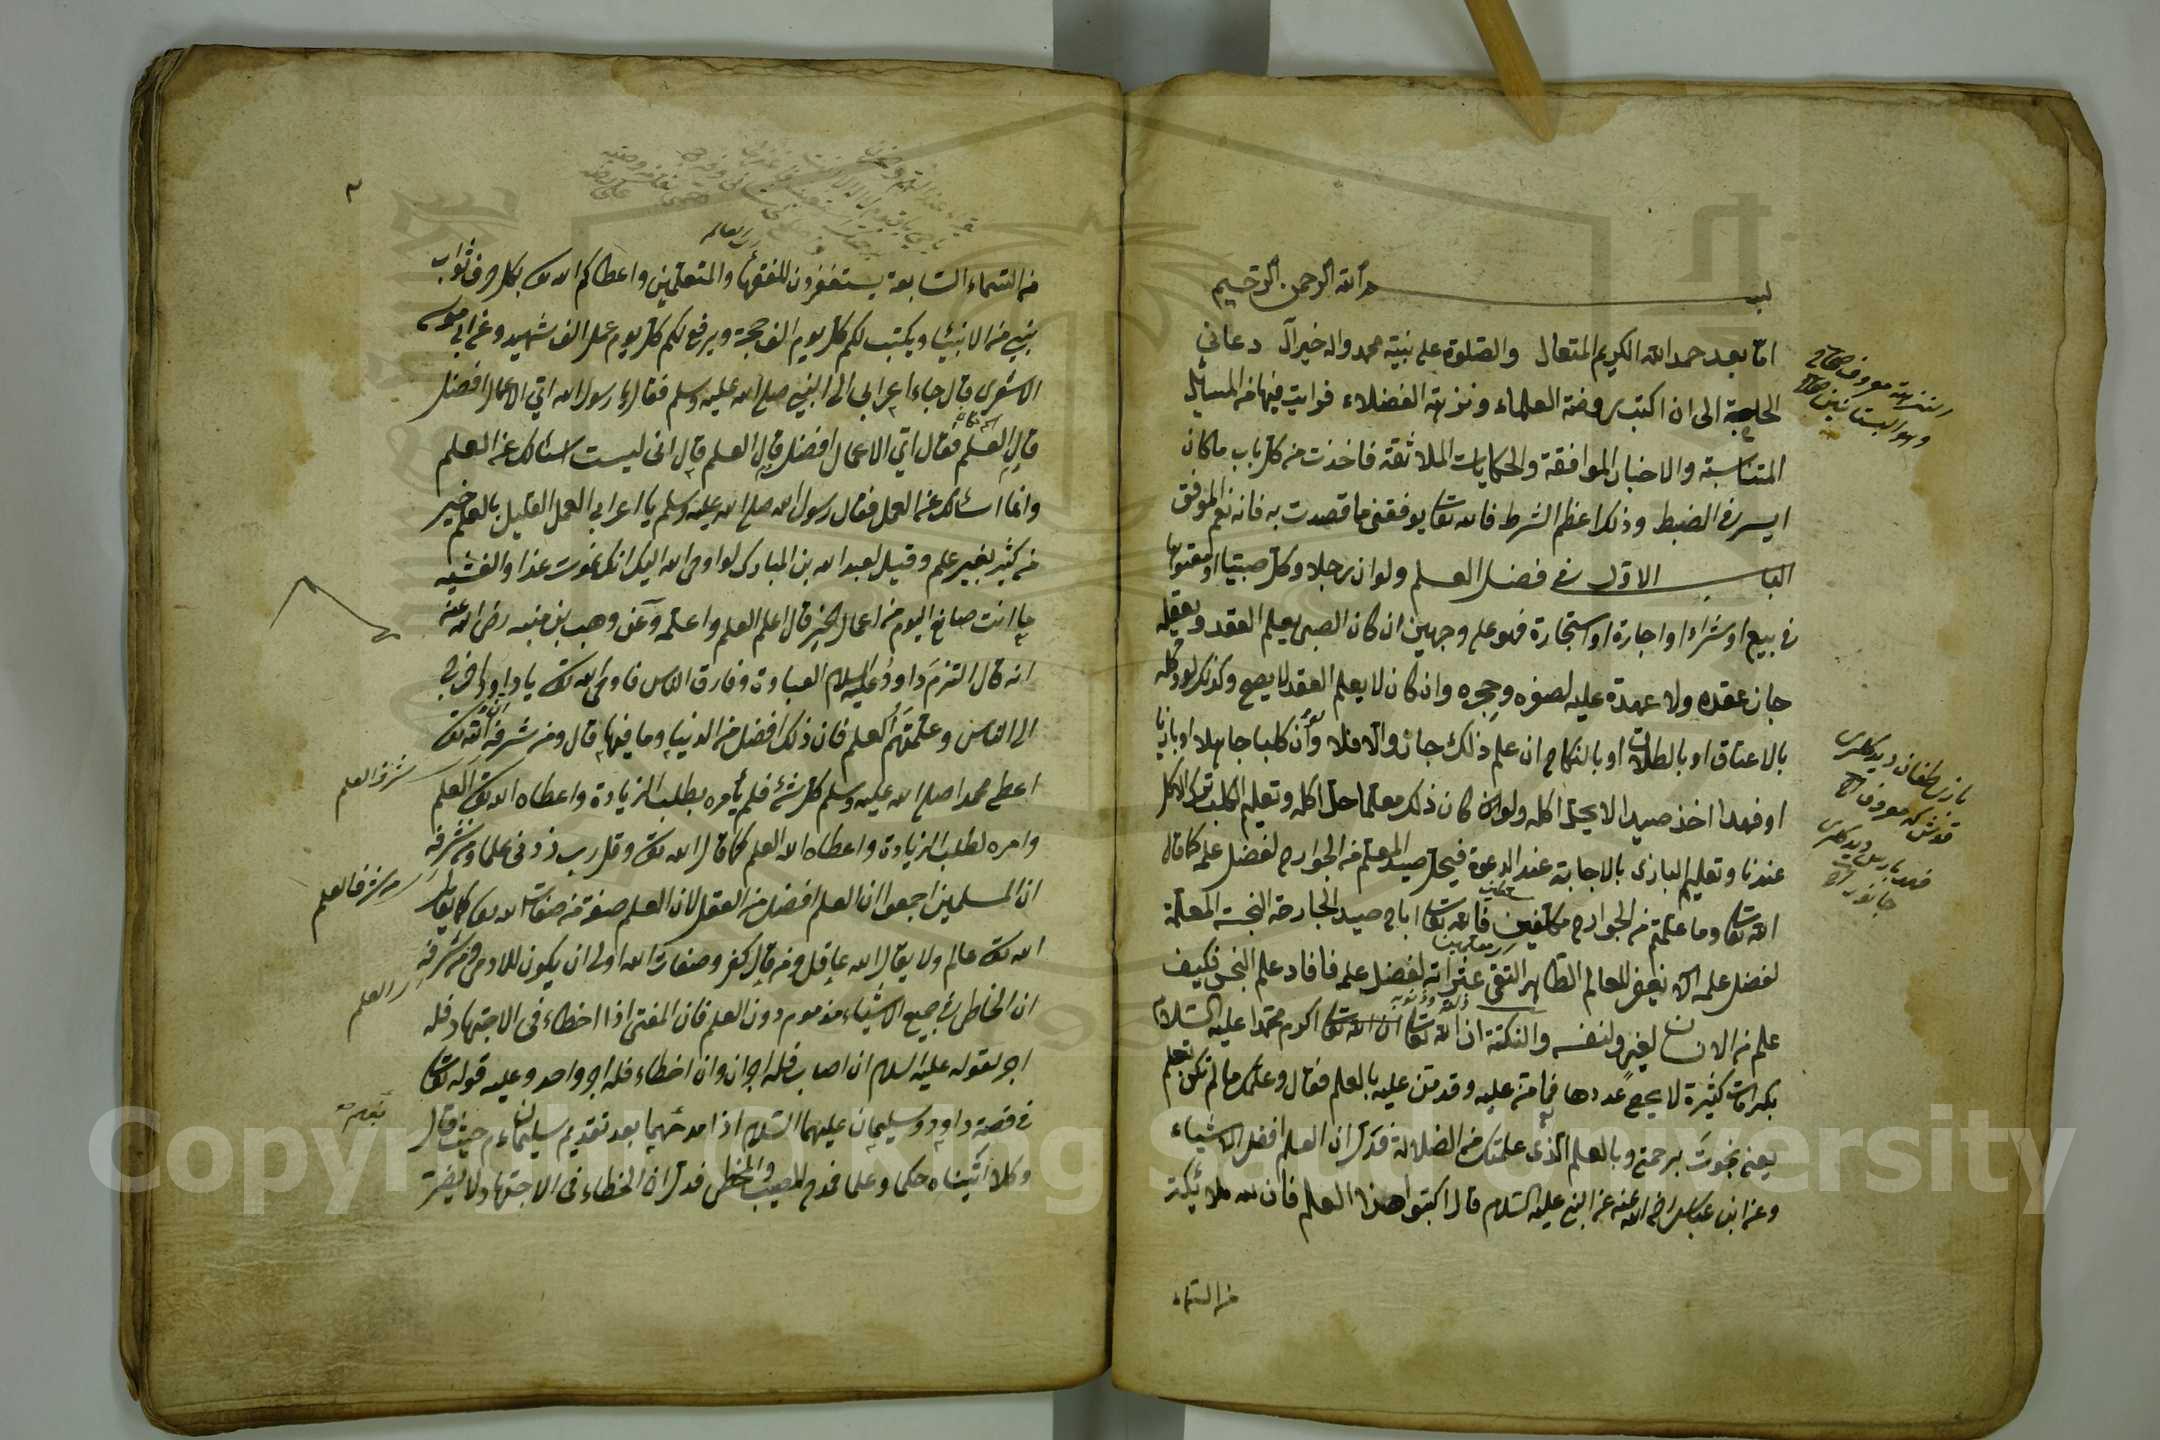 بسم الله الرحمن الرحيم
اما بعد حمد الله الكريم المتعال والصلوة على نبيه محمد واله خير آل دعاني
الحاجة الى ان اكتب روضة العلماء ونزهة الفضلاء فرايت فيها من المسايل
المتناسبة والاخبار الموافقة والحكايات الملائقة فاخذت من كل باب ما كان
ايسر في الضبط وذلك اعظم الشرط فالله تعا يوفقني ما قصدت به فانه نعم الموفق
الباب الاول في فضل العلم ولو ان رجلا وكل صبيا او معتوها
في بيع او شراء او اجارة او استجارة فهو على وجهين ان كان الصبي يعلم العقد ويعقله
جاز عقده ولا عهدة عليه لصغره وحجره وان كان لا يعلم العقد لا يصح وكذلك لو وكله
بالاعتاق او بالطلاق او بالنكاح ان علم ذلك جاز والا فلا ولو ان كلبا جاهلا او بازيا
او فهدا اخذ صيدا لا يحل اكله ولو ان كان ذلك معلما حل اكله وتعليم الكلب ترك الاكل
عندنا وتعليم البازى بالاجابة عند الدعوة فيحل صيد المعلم من الجوارح لفضل علمه كما قال
الله تعا وما علمتم من الجوارح مكلبين فالله تعا اباح صيد الجارحة النجسة المعلمة
لفضل علمه الا يغفر للعالم الطاهر التقي عثراته لفضل علمه فافاد علم النجس فكيف
علم من الانسان لغيره ولنفسه والنكتة ان الله تعا ان الله تعا اكرم محمدا عليه السلام
بكرامات كثيرة لا يحصى عددها فما من عليه وقد من عليه بالعلم فقال وعلمك ما لم تكن تعلم
يعنى نجوت برحمتي وبالعلم الذى علمتك من الضلالة فدل ان العلم افضل الاشياء
وعن ابن عباس رضى الله عنه عن النبي عليه السلام قال اكتبوا هذا العلم فان لله ملائكة
من السماء
النزهة معروف صحاح
وهو البستانين
من السماء السابعة يستغفرون للفقهاء والمتعلمين واعطاكم الله تعا بكل حرف ثواب
نبي من الانبياء ويكتب لكم كل يوم الف حجة ويرفع لكم كل يوم عمل الف شهيد وعن ابي موسى
الاشعرى قال جاء اعرابي الى النبي صلى الله عليه وسلم فقال يا رسول الله اي الاعمال افضل
قال العلم فقال اي الاعمال افضل قال العلم قال انى ليست اسئالك عن العلم
وانما اسئالك عن العمل فقال رسول الله صلى الله عليه وسلم يا اعرابي العمل القليل بالعلم خير
من كثير بغير علم وقيل لعبد الله بن المبارك لو اوحى الله اليك انك تموت غدا والعشية
ما انت صانع اليوم من اعمال الخير قال اعلم العلم واعلمه وعن وهب بن منبه رضى الله عنه
انه قال التزم داود عليه السلام العبادة وفارق الناس فاوحى الله تعا يا داود اخرج
الى الناس وعلمهم العلم فان ذلك افضل من الدنيا وما فيها قال ومن شرفه ان الله تعا
اعطى محمدا صلى الله عليه وسلم كل شئ فلم يأمره بطلب الزيادة واعطاه الله تعا العلم
وامره لطلب الزيادة واعطاه الله العلم كما قال الله تعا وقل رب زدنى علما ومن شرفه
ان المسلمين اجمعوا ان العلم افضل من العقل لان العلم صفة من صفات الله تعا كما يقال
الله تعا عالم ولا يقال الله عاقل ومن قال كفر وصفات الله اولى ان يكون للادمى ومن شرفه
ان الخاطى فى جميع الاشياء مذموم دون العلم فان المفتى اذا اخطاء فى الاجتهاد فله
اجر لقوله عليه السلام ان اصاب فله اجران وان اخطاء فله اجر واحد وعليه قوله تعا
فى قصة داود وسليمان عليهما السلام اذا مدحهما بعد تقديم سليمان عم حيث قال
وكلا آتيناه حكما وعلما فمدح المصيب والمخطى فدل ان الخطاء فى الاجتهاد لا يضر
شرف العلم
شرف العلم
Copyright © King Saud University